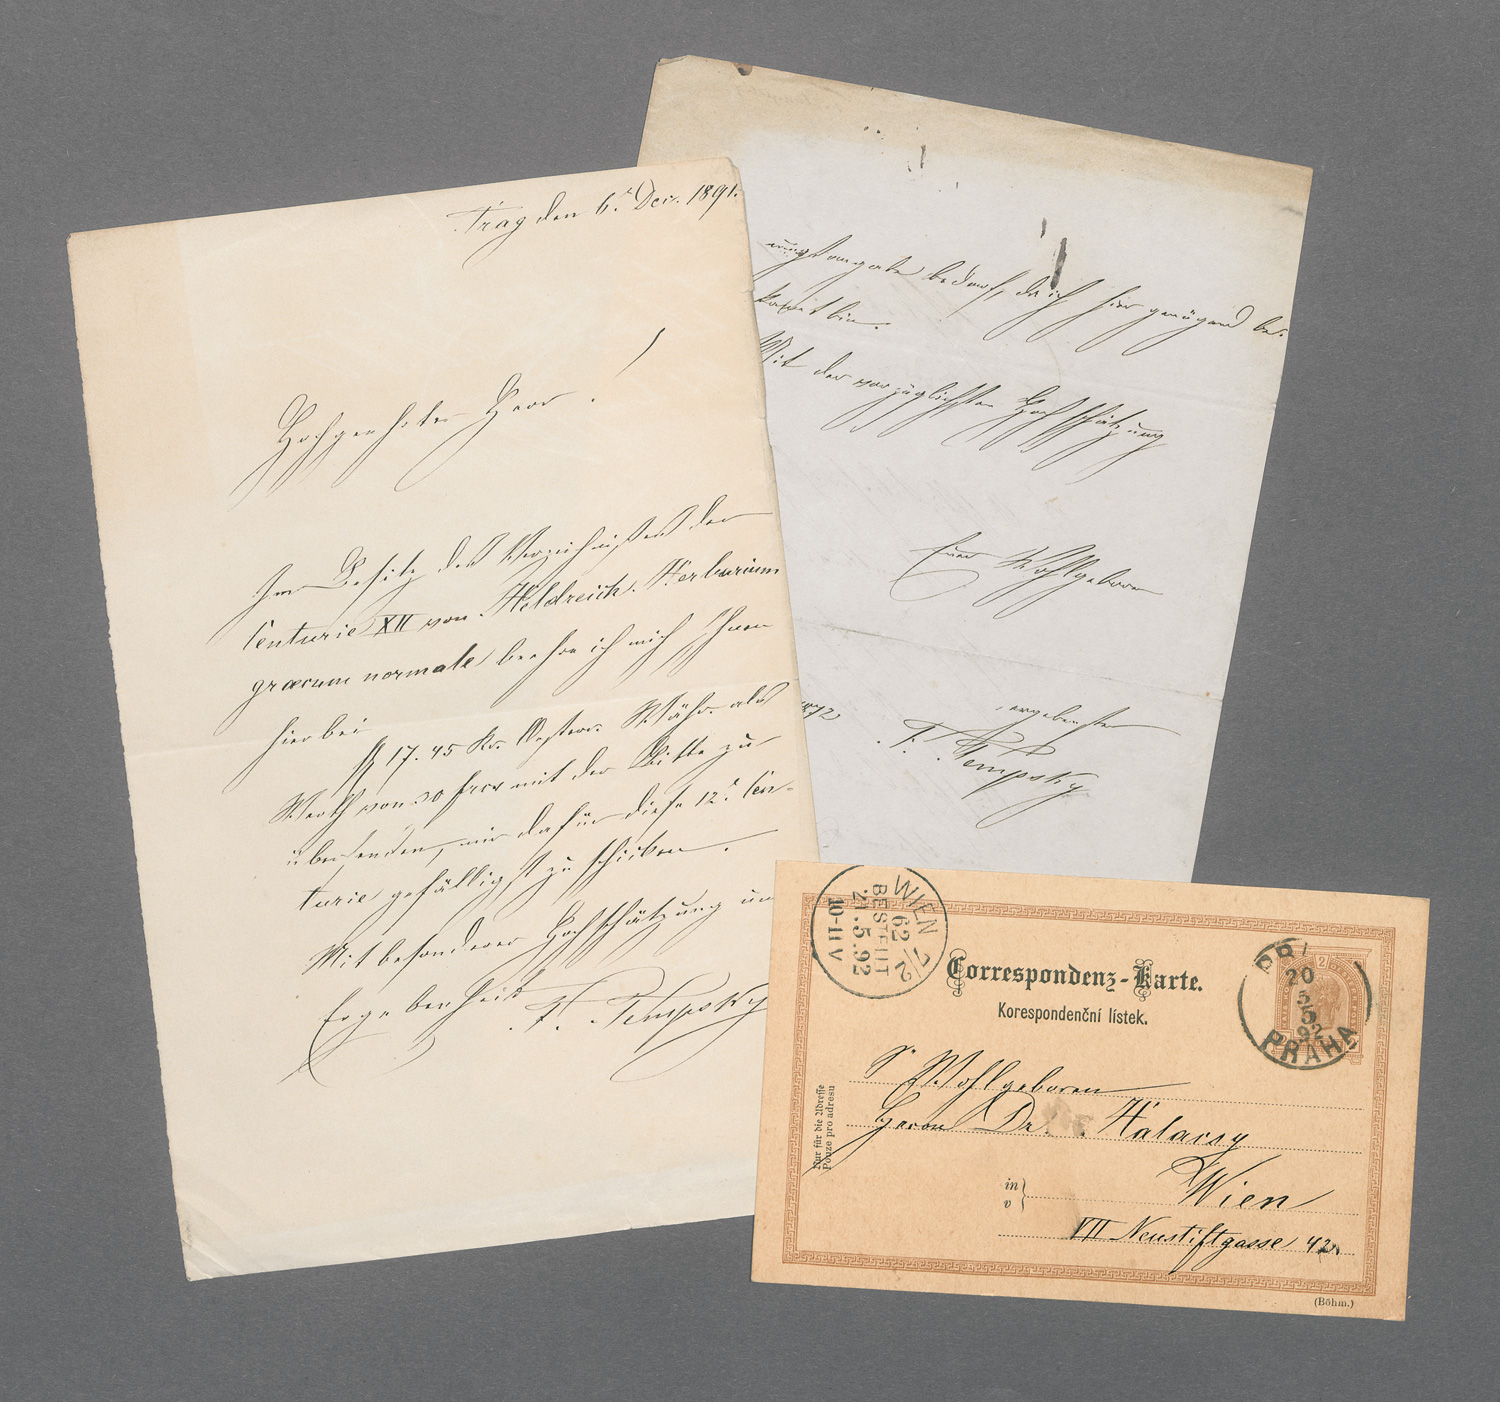 Prag den 6. Dez. 1891.
Hochgeehrter Herr!
Im Besitz des Verzeichnisses der
Centurie XII von Heldreich Herbarium
græcum normale beehre ich mich Ihnen
hierbei
fl 17.45 Kr. Oesterr. Währ. als
Werth von 30 frcs mit der Bitte zu
übersenden, mir dafür diese 12te Cen-
turie gefälligst zu schicken.
Mit besonderer Hochschätzung un
Ergebenheit F. Tempsky
bedarf, da ich hier genügend be-
kannt bin.
Mit der vorzüglichsten Hochschätzung
Euer Wohlgeboren
ergebenster
F. Tempsky
WIEN 7/2
62
BESTELLT
21.5.92
10-11 V
Correspondenz-Karte.
Korespondenční lístek.
2
20
5
92
PRAHA
Sr Wohlgeboren
Herrn Dr. Halacsy
in
v
Wien
VII Neustiftgasse 42
Nur für die Adresse
Pouze pro adresu
(Böhm.)